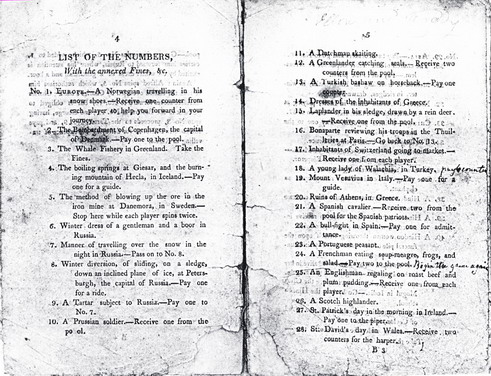 4
LIST OF THE NUMBERS,
With the annexed Fines, &c.
No. 1. EUROPE.—A Norwegian travelling in his
snow shoes.—Receive one counter from
each player to help you forward in your
journey.
2. The Bombardment of Copenhagen, the capital
of Denmark.—Pay one to the pool.
3. The Whale Fishery in Greenland. Take the
Fines.
4. The boiling springs at Giesar, and the burn-
ing mountain of Hecla, in Iceland.—Pay
one for a guide.
5. The method of blowing up the ore in the
iron mine at Danemora, in Sweden.—
Stop here while each player spins twice.
6. Winter dress of a gentleman and a boor in
Russia.
7. Manner of travelling over the snow in the
night in Russia.—Pass on to No. 8.
8. Winter diversion, of sliding, on a sledge,
down an inclined plane of ice, at Peters-
burgh, the capital of Russia.—Pay one
for a ride.
9. A Tartar subject to Russia.—Pay one to
No. 7.
10. A Prussian soldier.—Receive one from the
pool.
5
11. A Dutchman skaiting.
12. A Greenlander catching seals.—Receive two
counters from the pool.
13. A Turkish bashaw on horseback.—Pay one
counter.
14. Dresses of the Inhabitants of Greece.
15. Laplander in his sledge, drawn by a rein deer.
—Receive one from the pool.
16. Bonaparte reviewing his troops in the Thuil-
leries at Paris.—Go back to No. 13.
17. Inhabitants of Switzerland going to market.—
Receive one from each player.
18. A young lady of Walachia, in Turkey,
19. Mount Vesuvius in Italy.—Pay one for a
guide.
20. Ruins of Athens, in Greece.
21. A Spanish cavalier.—Receive two from the
pool for the Spanish patriots.
22. A bull-fight in Spain.—Pay one for admit-
tance.
23. A Portuguese peasant.
24. A Frenchman eating soup-meagre, frogs, and
salad.—Pay two to the pool. Begin the game again
25. An Englishman regaling on roast beef and
plum pudding.—Receive one from each
player.
26. A Scotch highlander.
27. St. Patrick's day in the morning in Ireland.—
Pay one to the piper.
28. St. David's day in Wales.—Receive two
counters for the harper.
B 3